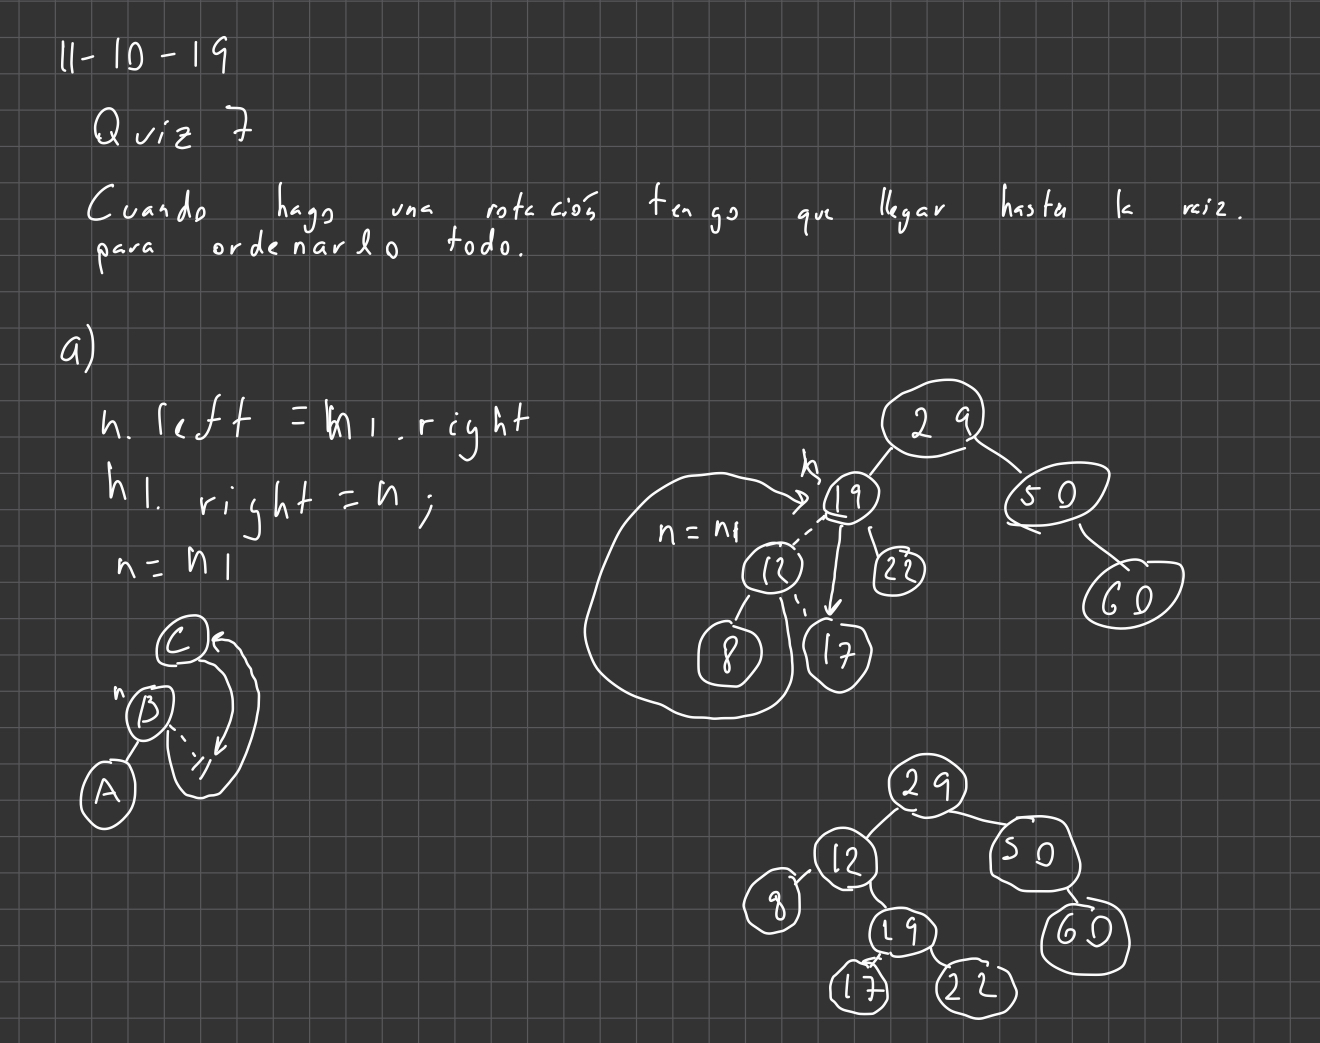 11-10-19
Quiz 7
Cuando hago una rotación tengo que llegar hasta la raiz.
para ordenarlo todo.
a)
n. left = n1. right
n1. right = n;
n = n1
C
n
B
A
29
n
19
50
n = n1
12
22
60
8
17
29
12
50
8
19
60
17
22